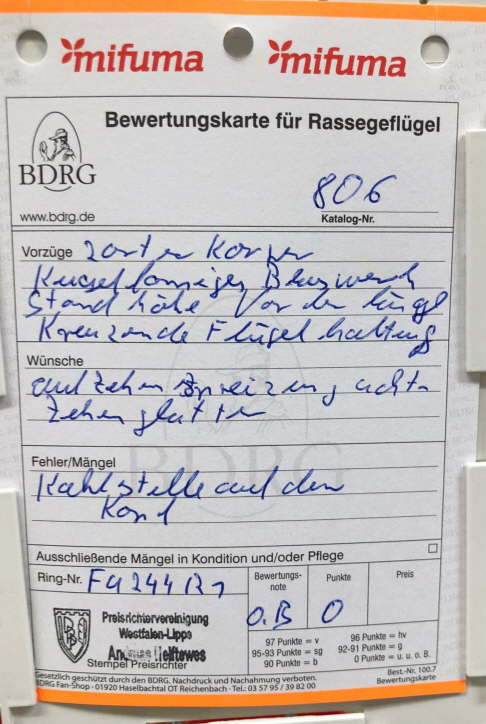 mifuma mifuma
Bewertungskarte für Rassegeflügel
BDRG
www.bdrg.de
806
Katalog-Nr.
Vorzüge zarter Körper
Stand höhe Vor der
Kreuzende Flügel haltung
Wünsche
auf Zehen Spreizung achten
Zehen glatter
BDRG
Fehler/Mängel
Kahlstelle auf dem
Ausschließende Mängel in Kondition und/oder Pflege
Ring-Nr.
Bewertungs-note Punkte Preis
O.B 0
Preisrichtervereinigung
Westfalen-Lippe
Stempel Preisrichter
97 Punkte = v 96 Punkte = hv
95-93 Punkte = sg 92-91 Punkte = g
90 Punkte = b 0 Punkte = u. u. o. B.
Gesetzlich geschützt durch den BDRG. Nachdruck und Nachahmung verboten.
BDRG Fan-Shop · 01920 Haselbachtal OT Reichenbach · Tel.: 03 57 95 / 39 82 00
Best.-Nr. 100.7
Bewertungskarte